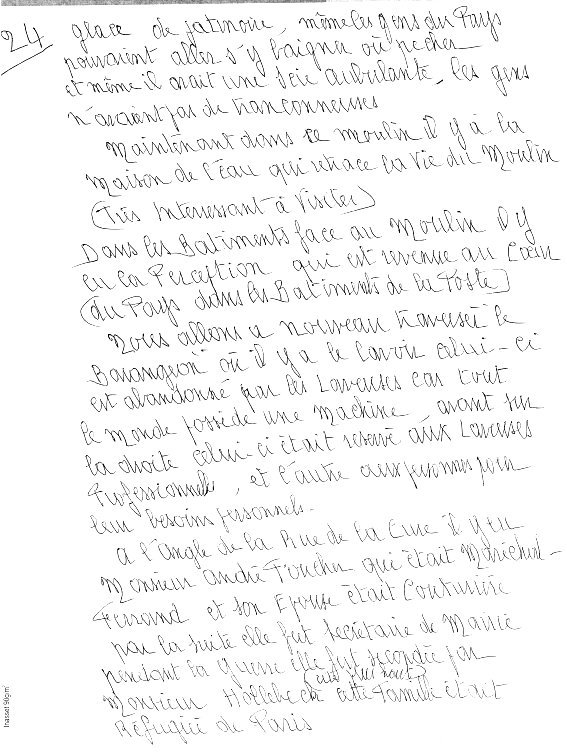 24
glace de patinoire, même les gens du Pays
pouvaient aller s'y baigner où pecher
et même il avait une Scie ambulante, les gens
n'avaient pas de tronconneuses
Maintenant dans ce moulin il y à la
maison de l'Eau qui retrace la Vie du Moulin
(Très Interessant à Visiter)
Dans les Batiments face au Moulin Il y
eu la Perception qui est revenue au Cœur
(du Pays dans les Batiments de la Poste)
Nous allons a nouveau traverser le
Barangeon où il y a le lavoir celui-ci
est abandonné par les Laveuses car tout
le monde possède une machine, avant sur
la droite celui-ci était reservé aux Laveuses
Professionnelle, et l'autre aux personnes pour
leur besoins personnels.
a l'angle de la Rue de la Cure il y eu
Monsieur André Foucher qui était Maréchal-
Ferrand et son Epouse était Couturière
par la suite elle fut Secrétaire de Mairie
pendant la guerre elle fut secondée par
Monsieur Hollebeck cette Famille était
Réfugiée de Paris